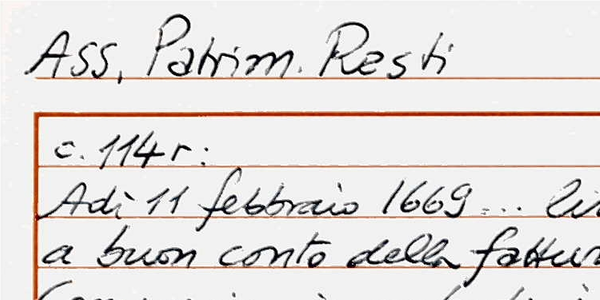 Ass. Patrim. Resti
c. 114r:
Adì 11 febbraio 1669 ...
a buon conto della